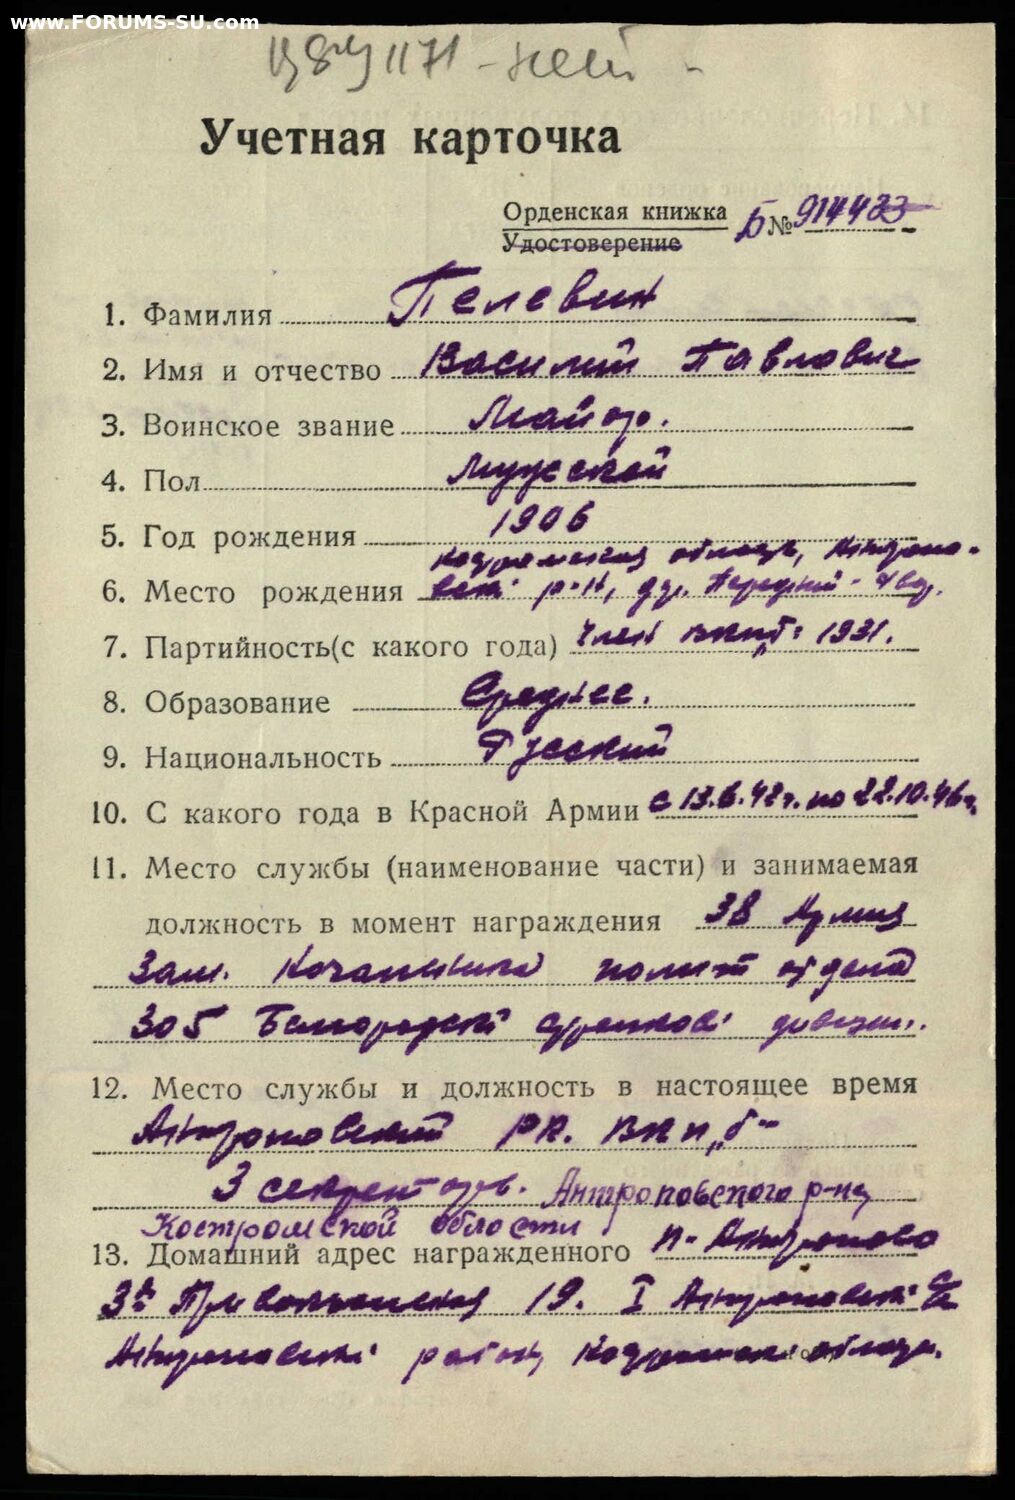 www.FORUMS-SU.com
1171 - нет -
Учетная карточка
Орденская книжка Б № 914433
Удостоверение
1. Фамилия Пелевин
2. Имя и отчество Василий Павлович
3. Воинское звание Майор.
4. Пол Мужской
5. Год рождения 1906
Костромская область, Антропо-
6. Место рождения вский р-н, дер. Передний
7. Партийность(с какого года) Член ВКП„б" 1931.
8. Образование Среднее.
9. Национальность Русский
10. С какого года в Красной Армии с 13.6.42г. по 22.10.46г.
11. Место службы (наименование части) и занимаемая
должность в момент награждения 38 Армия
Зам. Начальника полит отдела
305 Белгородской стрелковой дивизии.
12. Место службы и должность в настоящее время
Антроповский РК. ВКП„б"
3 секретарь. Антроповского р-на,
Костромской области
13. Домашний адрес награжденного п. Антропово
19. I Антроповский с/с
Антроповский район, Костромской области.